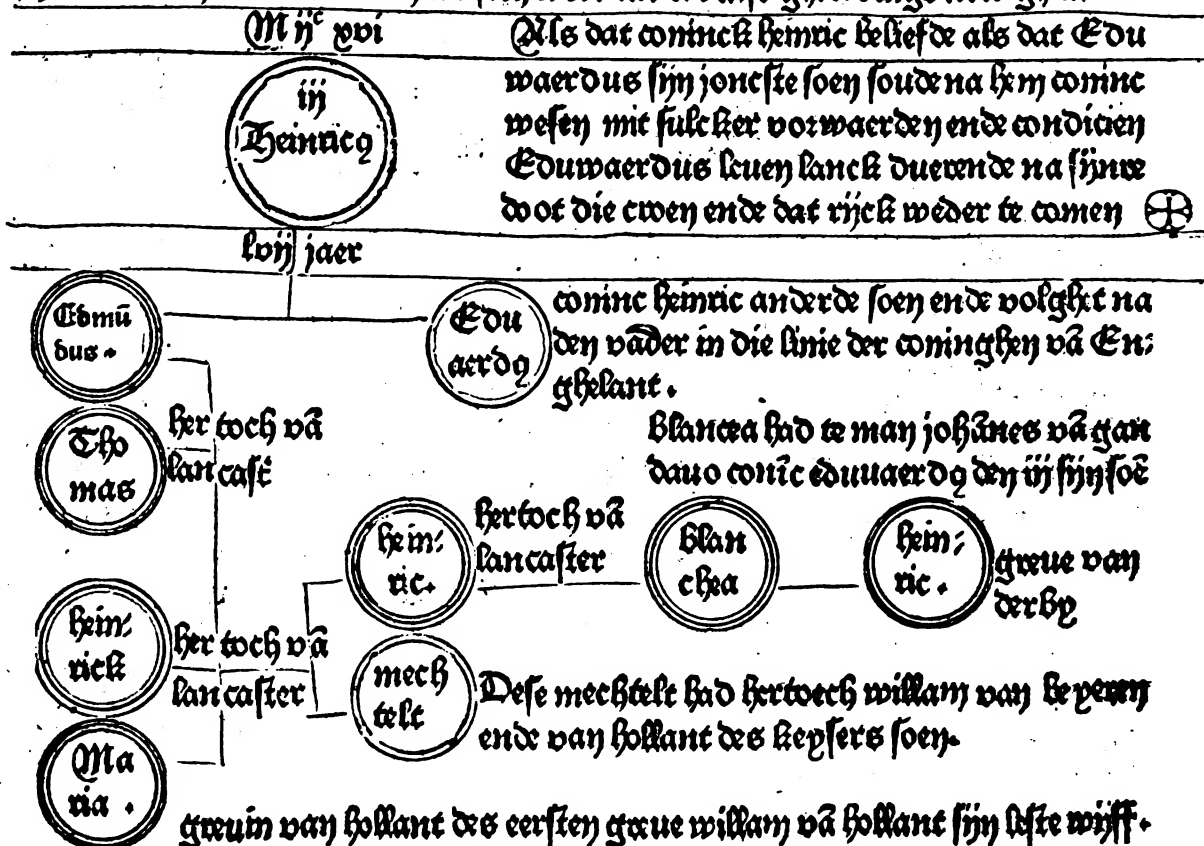 M ijᶜ xvi
Als dat coninck heinric beliefde als dat Edu
waerdus sijn joncste soen soude na hem coninc
wesen mit sulcker vorwaerden ende condicien
Eduwaerdus leuen lanck duerende na sijnre
doot die croen ende dat rijck weder te comen
iij
Heinricꝯ
lvij jaer
Edmū
dus.
Edu
aerdꝯ
coninc heinric anderde soen ende volghet na
den vader in die linie der coninghen vā En:
ghelant.
Tho
mas
her toch vā
lan cast
blancea had te man johānes vā gan
dauo conīc eduuaerdꝯ den iij sijn soē
hein:
ric.
hertoch vā
lancaster
blan
chea
hein:
ric.
greue van
derby
hein:
rick
her toch vā
lancaster
mech
telt
Dese mechtelt had hertoech willam van beyeren
ende van hollant des keysers soen.
Ma
ria.
greuin van hollant des eersten greue willam vā hollant sijn leste wijff.